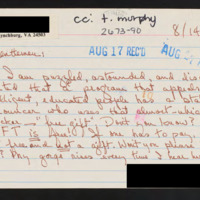 Lynchburg, VA 24503
cc: t. murphy
2673-90
8/14
AUG 17 REC'D
AUG
Gentlemen:
I am puzzled, astounded, and dis
ted that a program that appeals
educated people has a
uncer who uses that almost
"free gift". Don't you know?
FT is free! If one has to pay,
free and not a gift. Won't you please
My gorge rises every time I hear